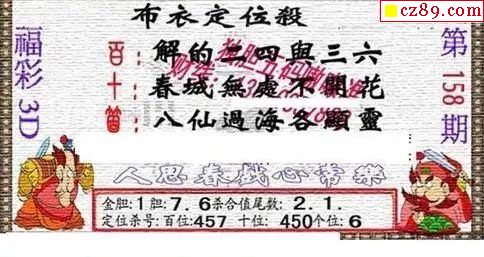 cz89.com
布衣定位殺
福彩3D
第158期
百：解的二四與三六
十：春城無處不開花
個：八仙過海各顯靈
人思春戲心常樂
金胆:1胆:7.6杀合值尾数:2.1.
定位杀号:百位:457 十位:450个位:6